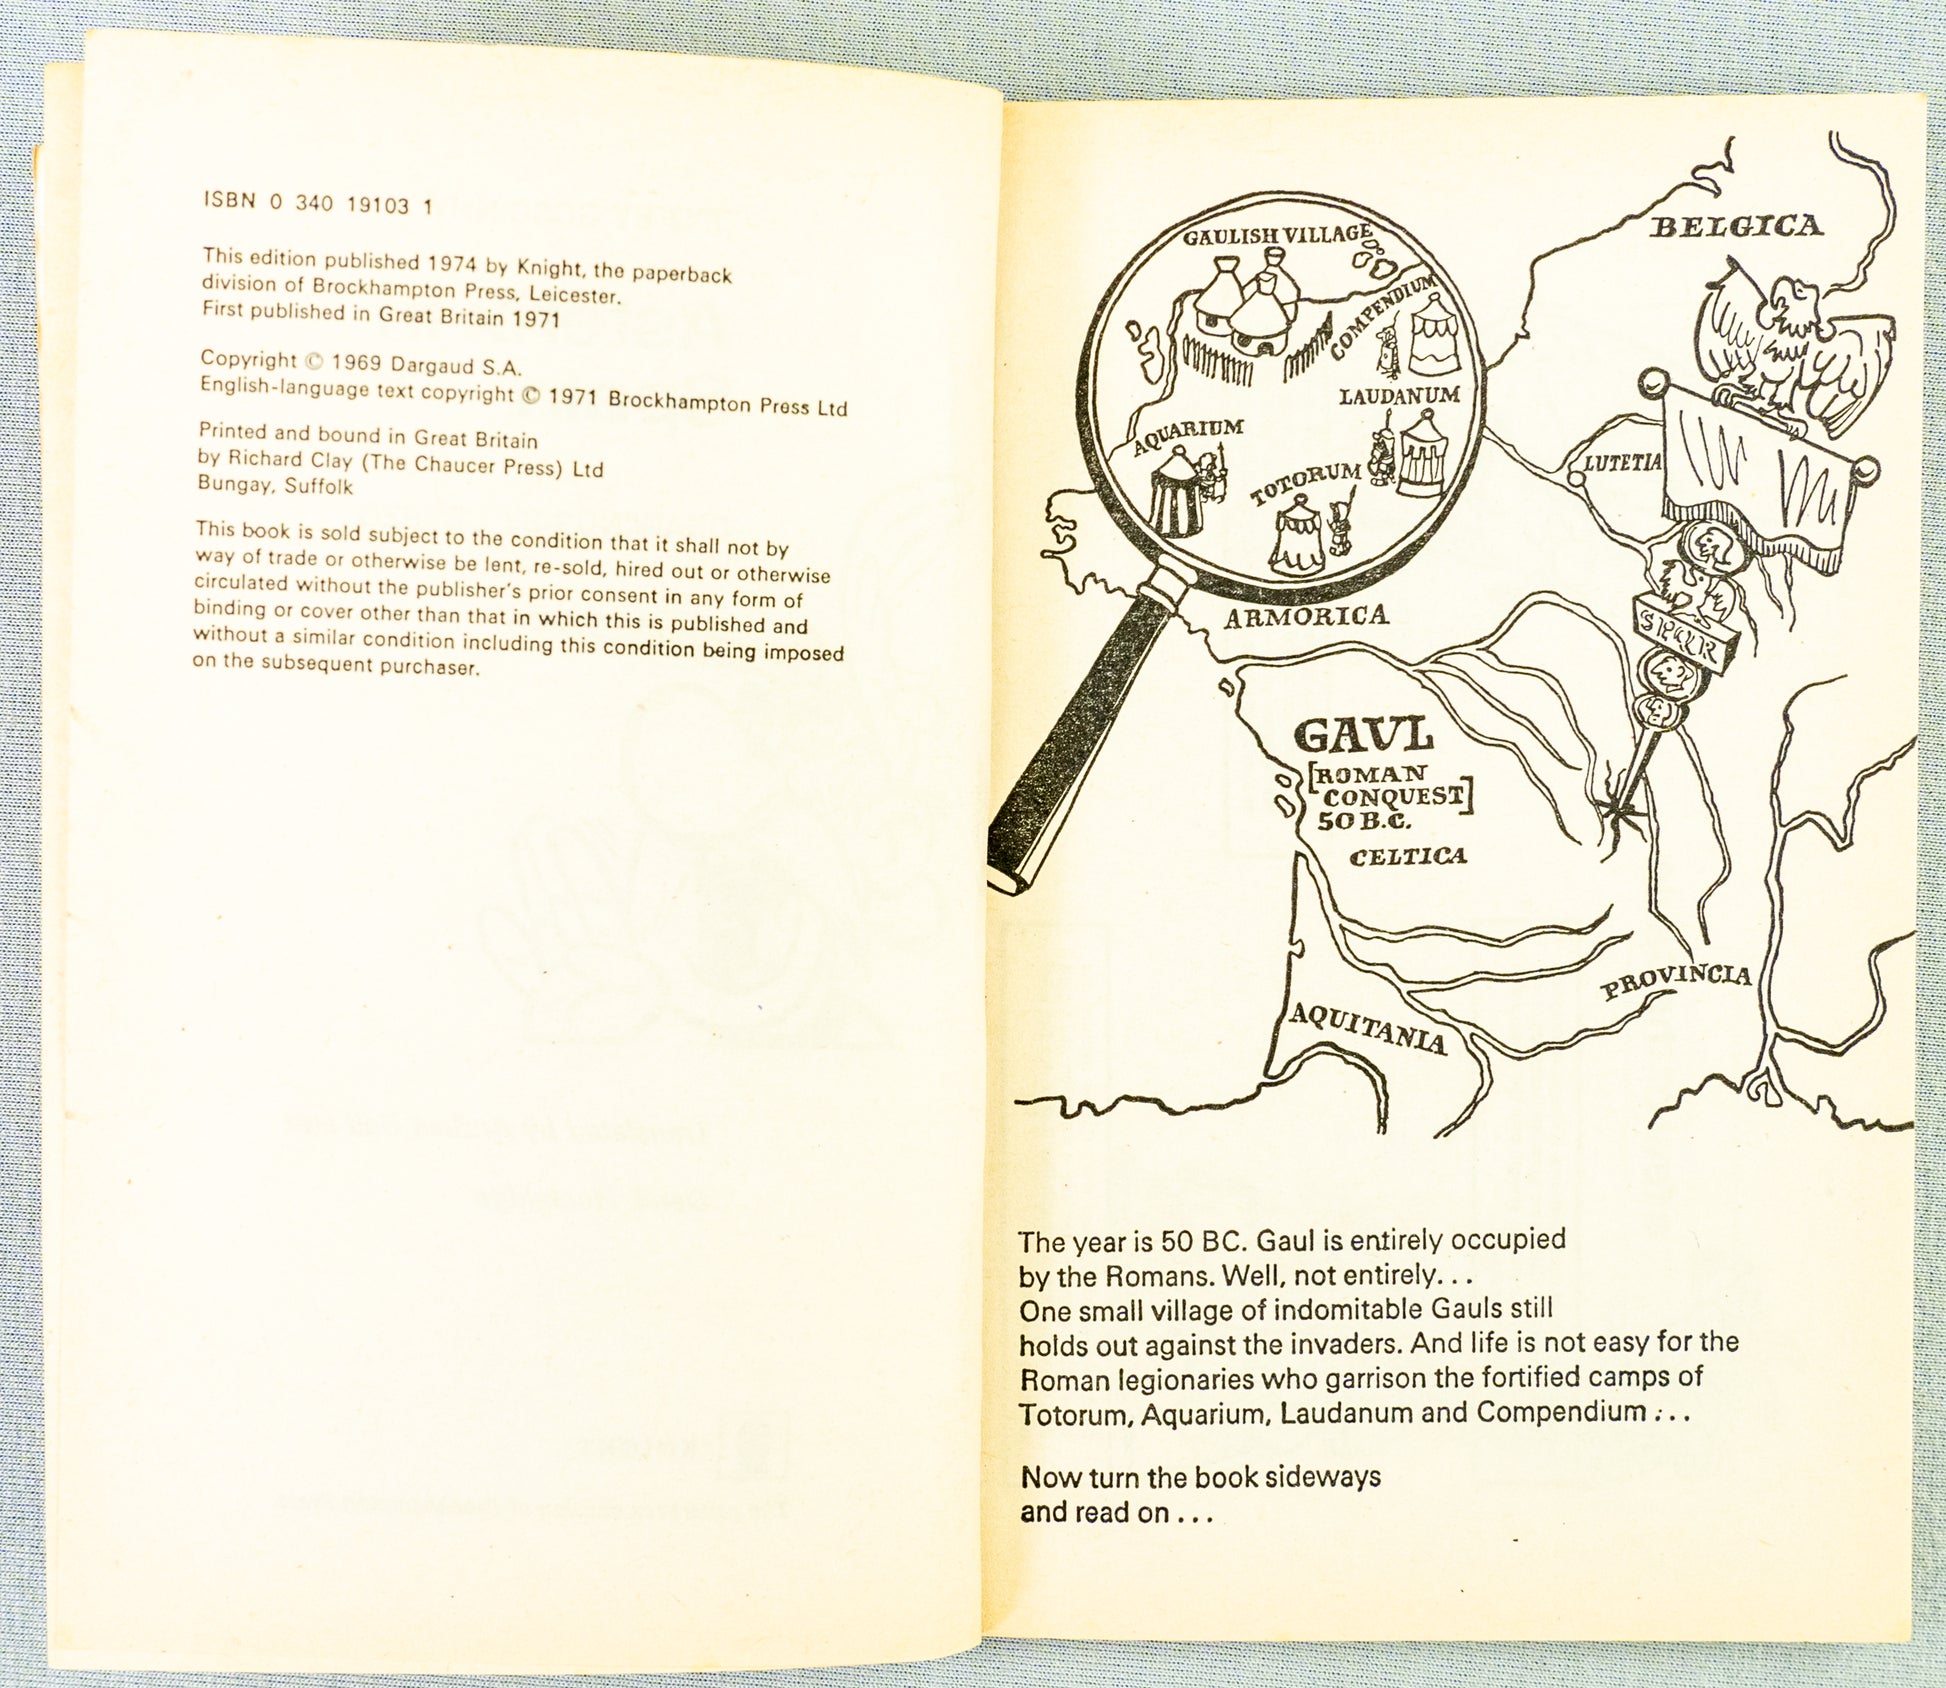 ISBN 0 340 19103 1
This edition published 1974 by Knight, the paperback
division of Brockhampton Press, Leicester.
First published in Great Britain 1971
Copyright © 1969 Dargaud S.A.
English-language text copyright © 1971 Brockhampton Press Ltd
Printed and bound in Great Britain
by Richard Clay (The Chaucer Press) Ltd
Bungay, Suffolk
This book is sold subject to the condition that it shall not by
way of trade or otherwise be lent, re-sold, hired out or otherwise
circulated without the publisher's prior consent in any form of
binding or cover other than that in which this is published and
without a similar condition including this condition being imposed
on the subsequent purchaser.
BELGICA
GAULISH VILLAGE
COMPENDIUM
LAUDANUM
AQUARIUM
TOTORUM
LUTETIA
SPQR
ARMORICA
GAUL
[ROMAN
CONQUEST]
50 B.C.
CELTICA
PROVINCIA
AQUITANIA
The year is 50 BC. Gaul is entirely occupied
by the Romans. Well, not entirely...
One small village of indomitable Gauls still
holds out against the invaders. And life is not easy for the
Roman legionaries who garrison the fortified camps of
Totorum, Aquarium, Laudanum and Compendium ...
Now turn the book sideways
and read on ...